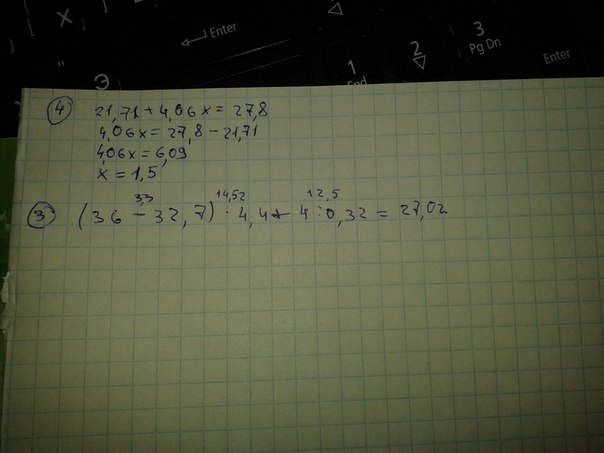 X
Enter
Э
1
End
2
3
Pg Dn
Enter
4 21,71 + 4,06x = 27,8
4,06x = 27,8 - 21,71
4,06x = 6,09
x = 1,5
3,3 14,52 12,5
3 (36 - 32,7) · 4,4 + 4 : 0,32 = 27,02